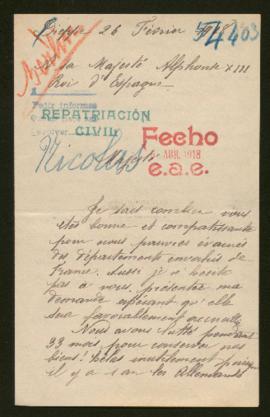 Dieppe 26 Février 1918
54403
Sa Majesté Alphonse XIII
Roi d'Espagne
Pedir informes
REPATRIACIÓN
CIVIL
Nicolas
Fecho
ABR. 1918
e.a.e.
Majesté
Je sais combien vous
êtes bonne et compatissante
pour nous pauvres évacués
des départements envahis de
France. Aussi je n'hésite
pas à vous présenter ma
demande espérant qu'elle
sera favorablement accueillie
Nous avons lutté pendant
33 mois, pour conserver nos
biens. Hélas inutilement puisque
il y a 1 an les Allemands